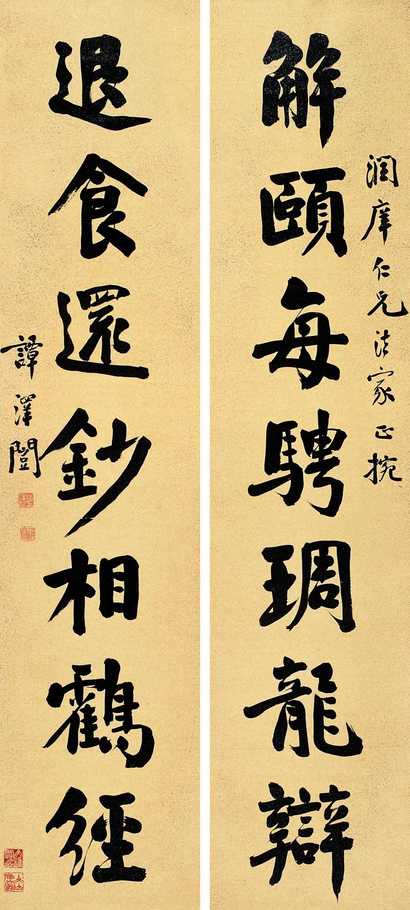 解頤每騁琱龍辯
潤庠仁兄法家正捥
退食還鈔相鶴經
譚澤闓